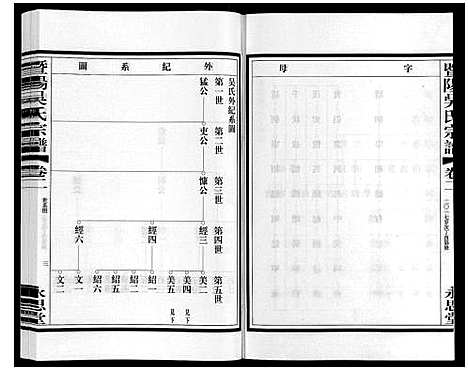 字
母
暨陽吳氏宗譜
卷二
永思堂
外紀系圖
吳氏外紀系圖
第一世
第二世
第三世
第四世
第五世
猛公
吏公
慷公
經三
經四
經六
美二
美四
見下
美五
見下
紹一
紹二
紹六
文一
文二
暨陽吳氏宗譜
卷二
世系圖
三
永思堂